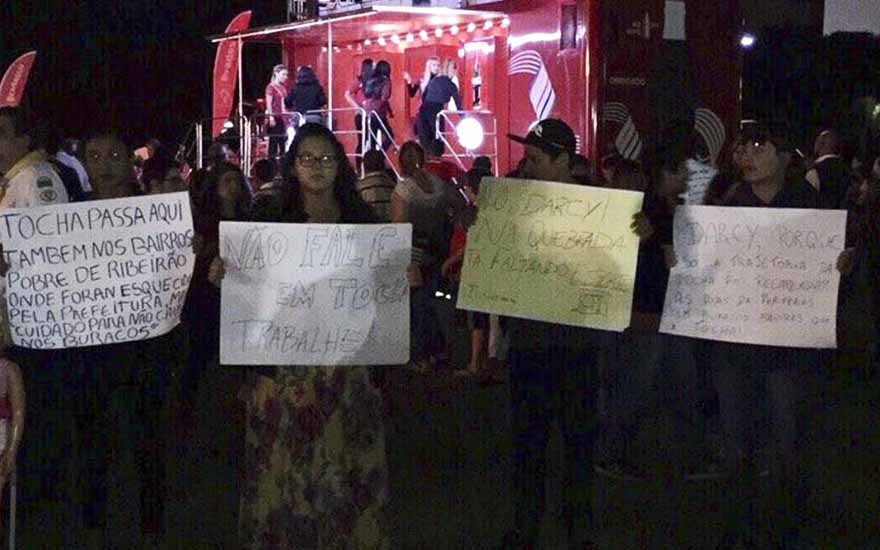 TOCHA PASSA AQUI
TAMBEM NOS BAIRROS
POBRE DE RIBEIRÃO
ONDE FORAN ESQUECID
PELA PREFEITURA, M
CUIDADO PARA NÃO CA
NOS BURACOS.
NÃO FALE
EM TOCHA
TRABALHE
DARCY!
NA QUEBRADA
TA FALTANDO
DARCY, PORQUE
SO A TRAJETORIA DA
TOCHA FOI RECAPEADA?
AS RUAS DA PERIFERIA
TEM BURACOS MAIORES QUE
TOCHA!